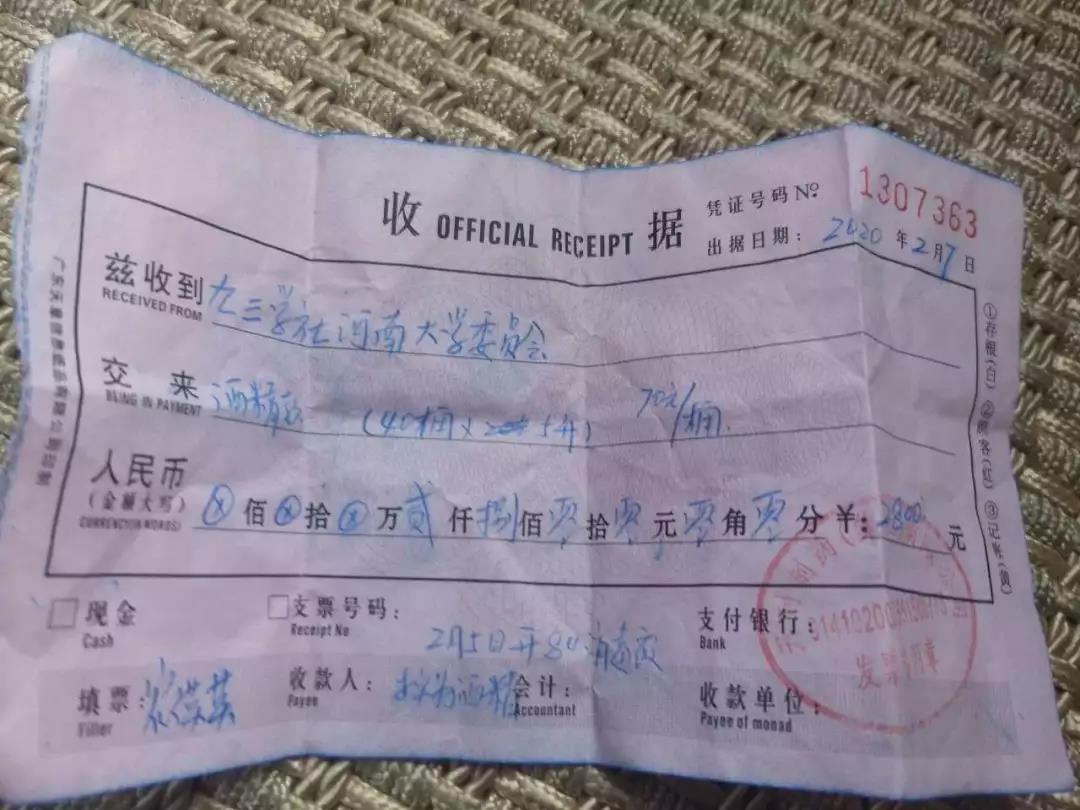 收 OFFICIAL RECEIPT 据
凭证号码 № 1307363
出据日期: 2020 年 2 月 7 日
兹收到 九三学社河南大学委员会
RECEIVED FROM
交来 酒精 (40桶× 5升) 70元/桶
BLING IN PAYMENT
人民币 ⊗佰⊗拾⊗万贰仟捌佰零拾零元零角零分 ¥: 2800 元
(金额大写)
CURRENCTION WORDS)
①存根(白) ②顾客(红) ③记账(黄)
现金
Cash
支票号码:
Receipt No
2月5日开84消毒液
支付银行:
Bank
发票专用章
填票:
Filler
收款人: 酒精
Payee
会计:
Accountant
收款单位:
Payee of monad